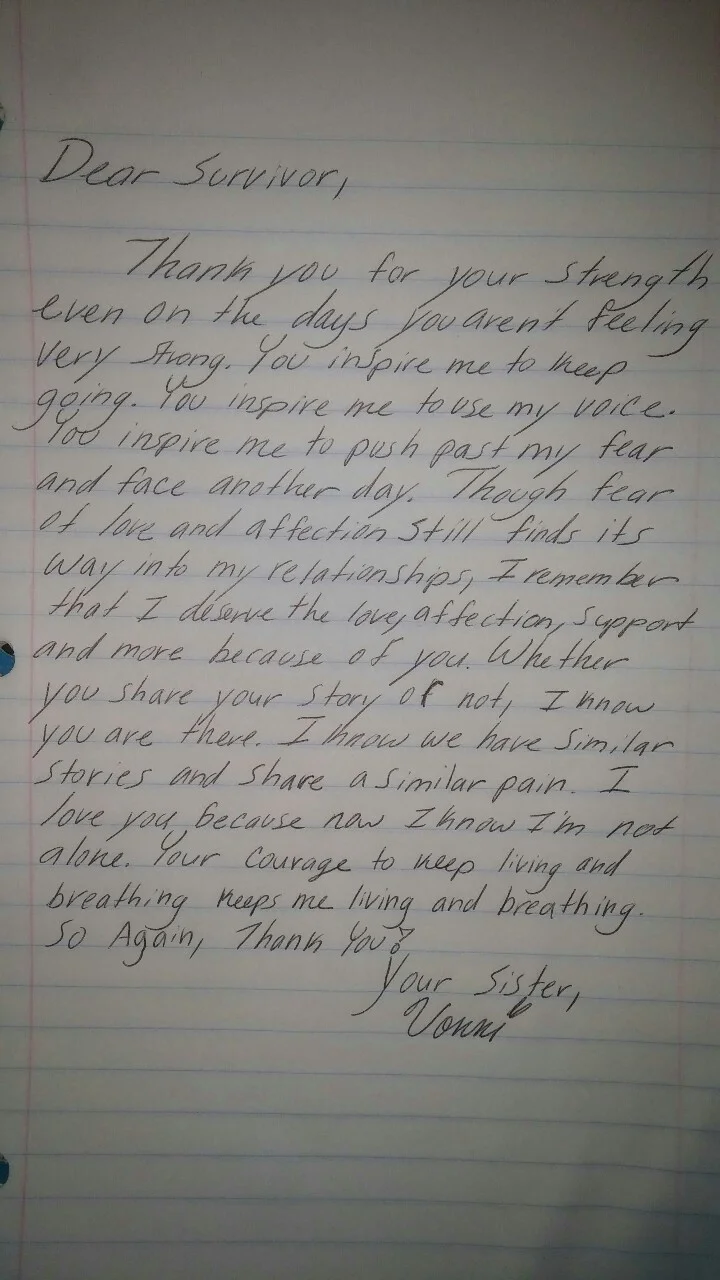 Dear Survivor,
Thank you for your strength
even on the days you aren't feeling
very strong. You inspire me to keep
going. You inspire me to use my voice.
You inspire me to push past my fear
and face another day. Though fear
of love and affection still finds its
way into my relationships, I remember
that I deserve the love, affection, support
and more because of you. Whether
you share your story or not, I know
you are there. I know we have similar
stories and share a similar pain. I
love you because now I know I'm not
alone. Your courage to keep living and
breathing keeps me living and breathing.
So Again, Thank You!
Your Sister,
Vonni